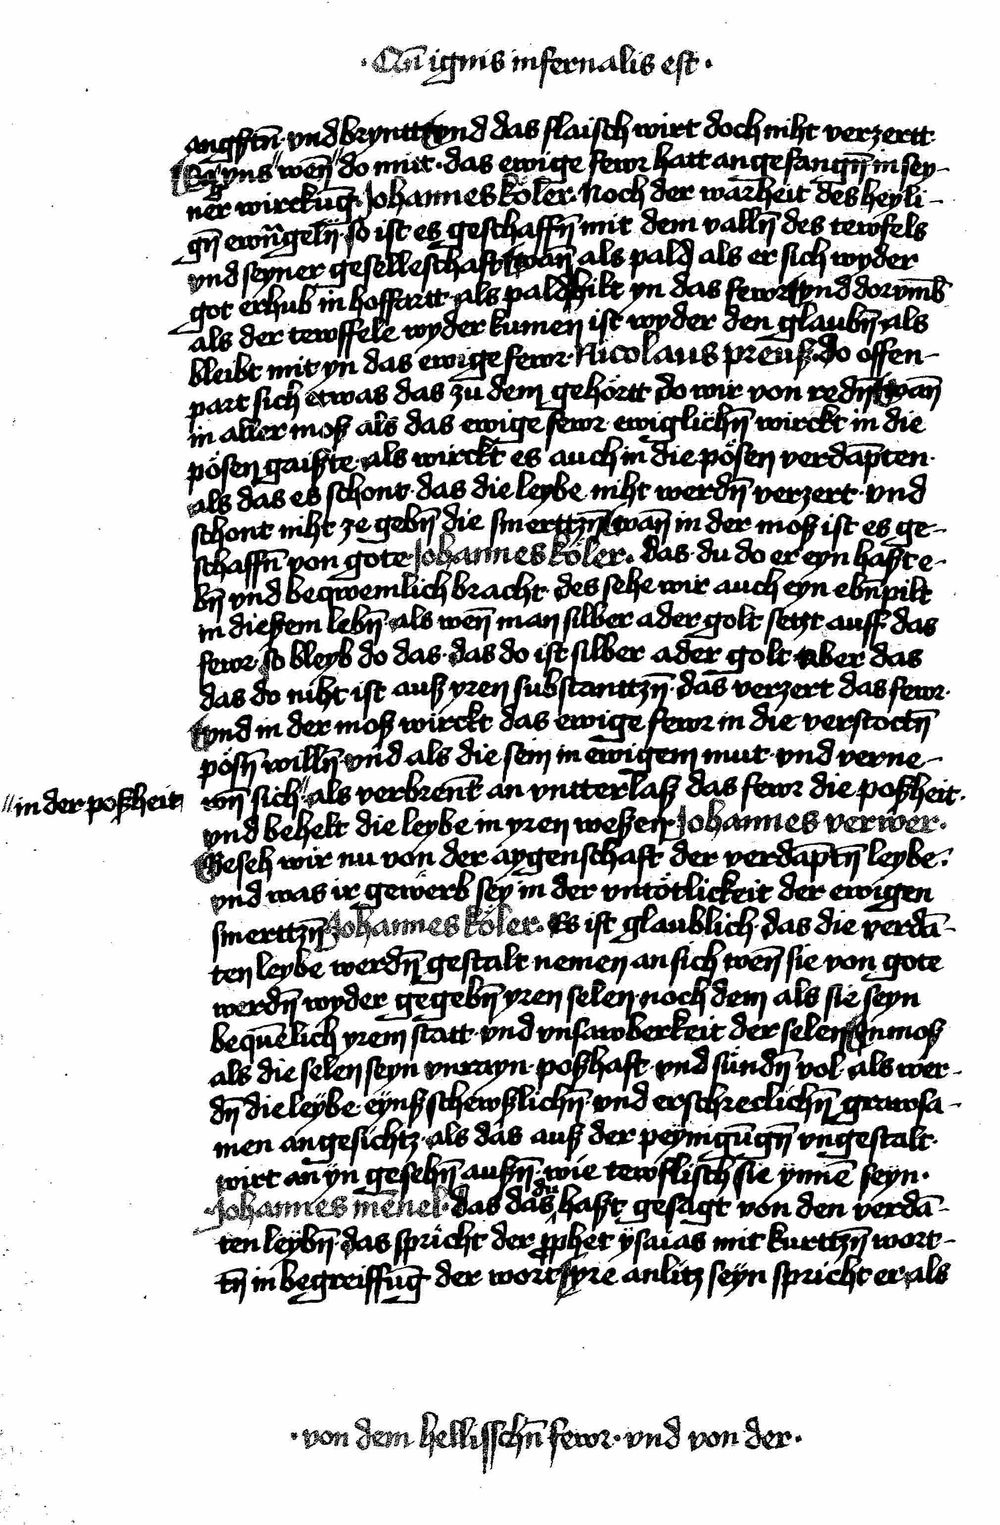 · Cū ignis infernalis est ·
angstn̄ · vnd brynnt vnd das flaisch wirt doch niht verzertt
yns wen̄ do mit · das ewige fewr hatt angefangn̄ in sey-
ner wirckūg · Johannes köler · Noch der warheit des heyli-
gn̄ ewn̄geln̄ · so ist es geschaffn̄ mit dem valln̄ des tewfels
vnd seyner geselleschaft wan̄ als pald als er sich wyder
got erhub in hoffartt · als pald hilt yn das fewr vnd dorvmb
als der tewffele wyder kumen ist wyder den glaubn̄ · als
bleibt mit yn das ewige fewr · Nicolaus preuß · do offen-
part sich etwas das zu dem gehörtt do wir von redn̄ wan̄
in aller moß als das ewige fewr ewiglichn̄ wirckt in die
pösen gaißte · als wirckt es auch in die pösen verdāpten ·
als das es schont · das die leybe niht werdn̄ verzert · vnd
schont niht ze gebn̄ die smerttzn̄ wan̄ in der moß ist es ge-
schaffn̄ von gote Johannes köler · das · du do er eyn haßt e-
bn̄ vnd beqwemlich bracht · des sehe wir auch eyn ebn̄pilt
in dießem lebn̄ · als wen̄ man silber ader golt setzt auff das
fewr · so bleyb do das · das do ist silber ader golt aber das
das do niht ist auß yren substanttzn̄ · das verzert das fewr ·
vnd in der moß wirckt das ewige fewr in die verstoctn̄
pösn̄ willn̄ · vnd als die sein in ewigem mut · vnd verne-
wn̄ sich " als verbrent an vntterlaß das fewr die poßheit ·
" in der poßheit
vnd behelt die leybe in yren weßen · Johannes verwer ·
Geseh wir nu von der aygenschaft der verdāptn̄ leybe :
vnd was ir gewerb sey in der vntötlickeit der ewigen
smerttzn̄ Johannes köler · Es ist glaublich das die verdā-
ten leybe werdn̄ gestalt nemen an sich wen̄ sie von gote
werdn̄ wyder gegebn̄ yren selen · noch dem als sie seyn
bequēlich yrem statt · vnd vnsawberkeit der selen In moß
als die selen seyn vnrayn · poßhaft · vnd sündn̄ vol · als wer-
dn̄ die leybe eynß schewßlichn̄ · vnd erschreclichn̄ grawsa-
men angesichtz · als das auß der peynigūgn̄ vngestalt ·
wirt an yn gesehn̄ außn̄ · wie tewflisch sie ynnē seyn ·
Johannes menel · das das du haßt gesagt von den verdā-
ten leybn̄ · das spricht der pphet ysaias mit kurttzn̄ wort-
tn̄ in begreiffūg der wort yre anlitz seyn spricht er · als
· von dem hellisschn̄ fewr · vnd von der ·